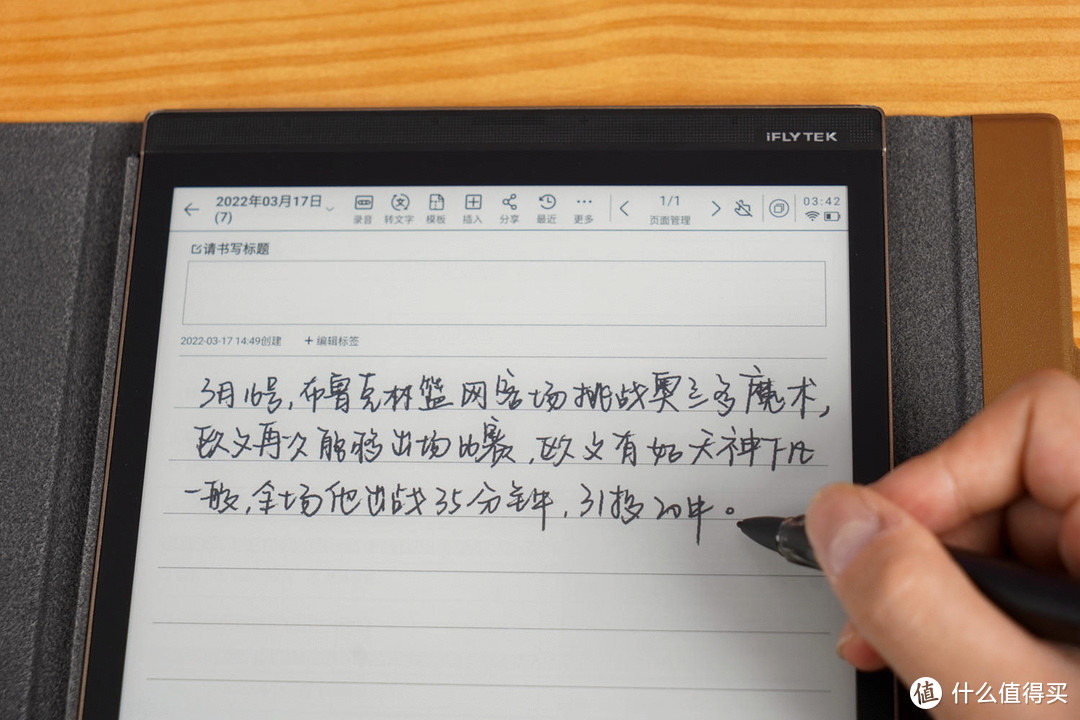 iFLYTEK
2022年03月17日
(7)
录音 转文字 模板 插入 分享 最近 更多
1/1
页面管理
03:42
请书写标题
2022-03-17 14:49创建 + 编辑标签
3月16号,布鲁克林篮网客场挑战奥兰多魔术,
欧文再次能够出场比赛,欧文有如天神下凡
一般,全场他出战35分钟,31投20中。
值 什么值得买